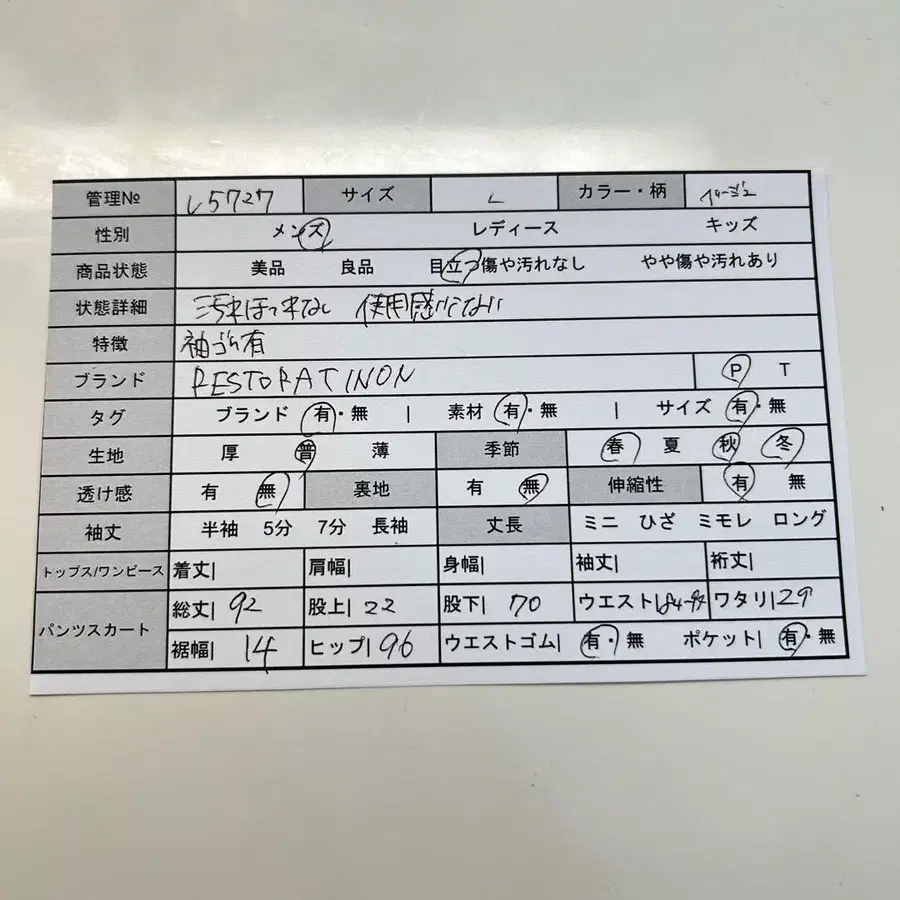 管理№ L5727 サイズ L カラー・柄 ベージュ
性別 メンズ レディース キッズ
商品状態 美品 良品 目立つ傷や汚れなし やや傷や汚れあり
状態詳細 汚れほつれなし 使用感少ない
特徴 袖ゴム有
ブランド RESTORATINON P T
タグ ブランド 有・無 | 素材 有・無 | サイズ 有・無
生地 厚 普 薄 季節 春 夏 秋 冬
透け感 有 無 裏地 有 無 伸縮性 有 無
袖丈 半袖 5分 7分 長袖 丈長 ミニ ひざ ミモレ ロング
トップス/ワンピース 着丈| 肩幅| 身幅| 袖丈| 裄丈|
パンツスカート 総丈| 92 股上| 22 股下| 70 ウエスト| ワタリ| 29
裾幅| 14 ヒップ| 96 ウエストゴム| 有・無 ポケット| 有・無